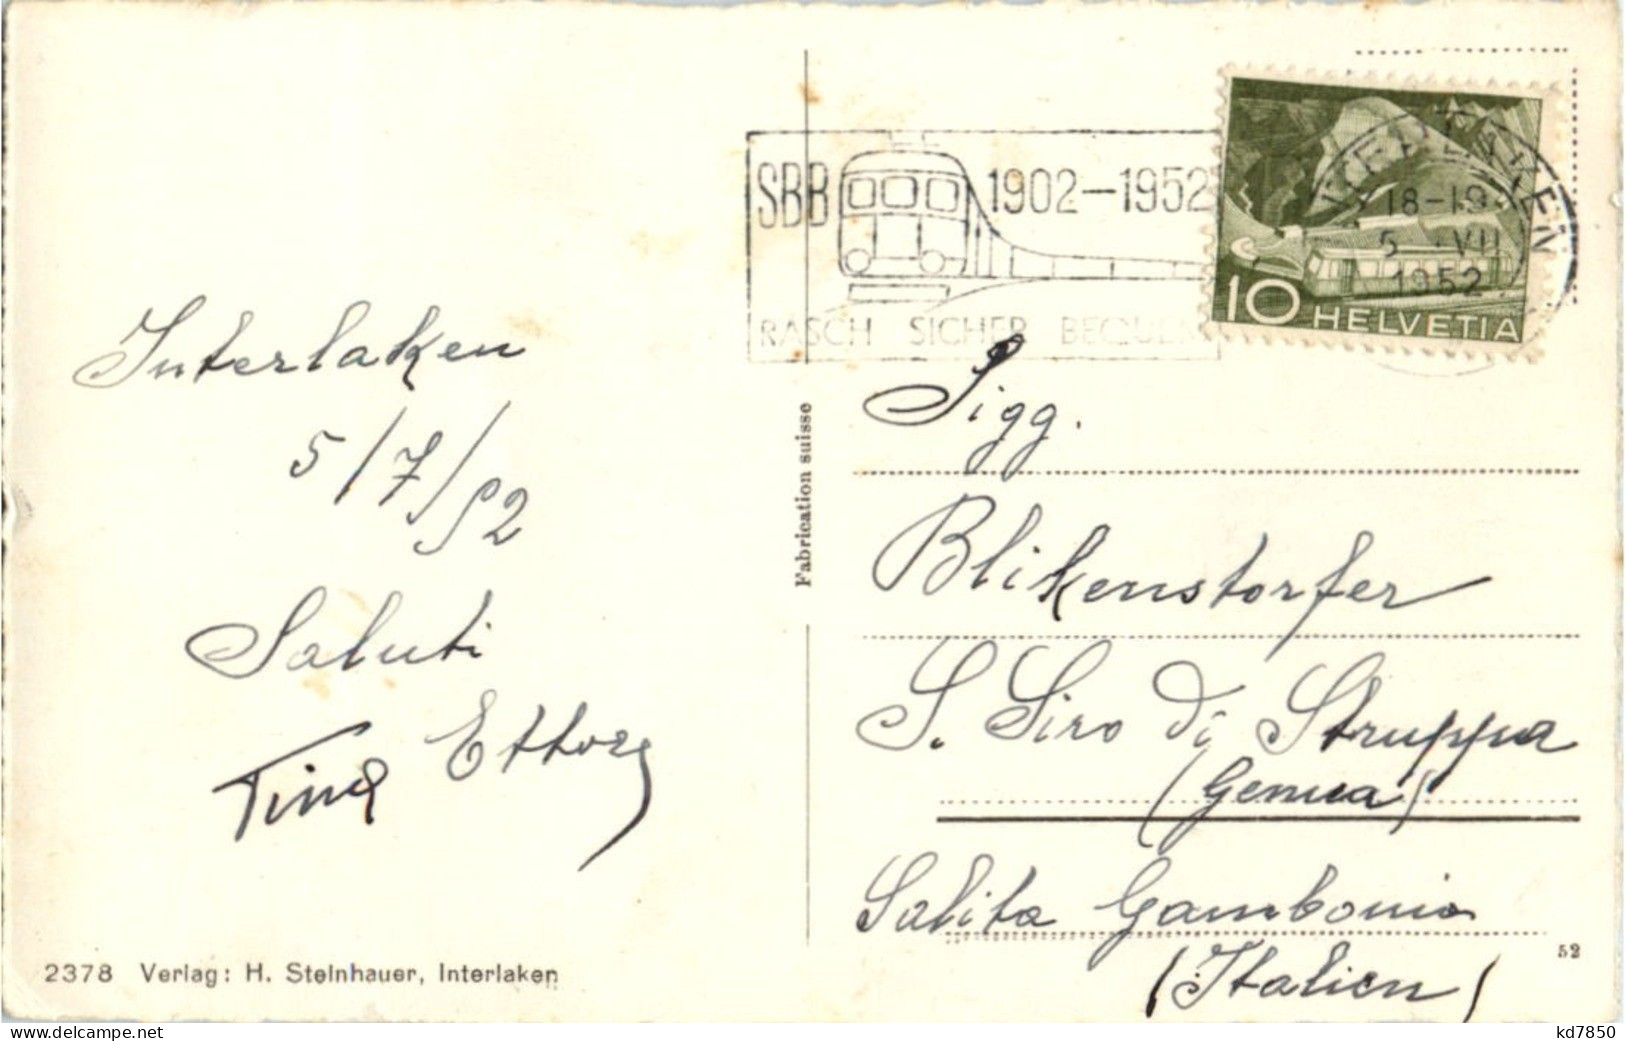 SBB 1902-1952
RASCH SICHER BEQUEM
INTERLAKEN
18-19
5 VII
1952
10 HELVETIA
Interlaken
5/7/52
Saluti
Tina Ettore
Fabrication suisse
Sigg.
Blikenstorfer
S. Siro di Struppa
(Genua)
Salita Gambonia
(Italien)
52
2378 Verlag: H. Steinhauer, Interlaken
https://www.delcampe.net
kd7850